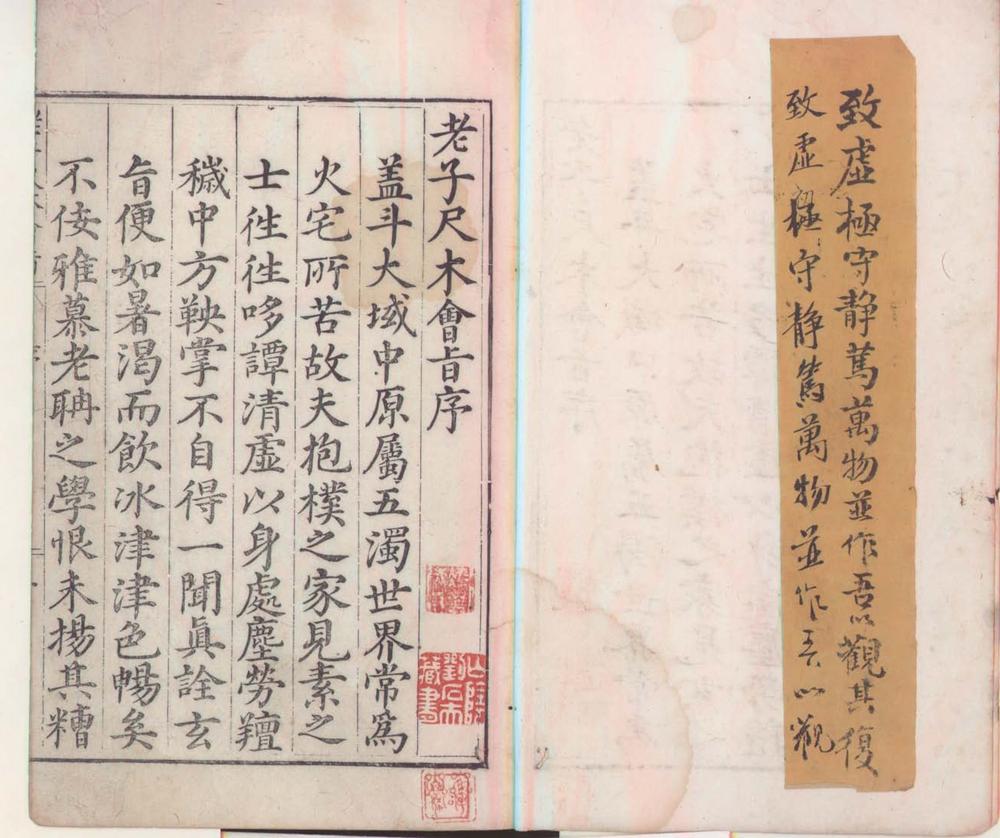 致虛極守静篤萬物並作吾以觀其復
致虛極守静篤萬物並作吾以觀
老子尺木會旨序
盖斗大域中原屬五濁世界常爲
火宅所苦故夫抱樸之家見素之
士徃徃哆譚清虛以身處塵勞羶
穢中方鞅掌不自得一聞眞詮玄
旨便如暑渴而飲冰津津色暢矣
不佞雅慕老聃之學恨未揚其糟
藏書